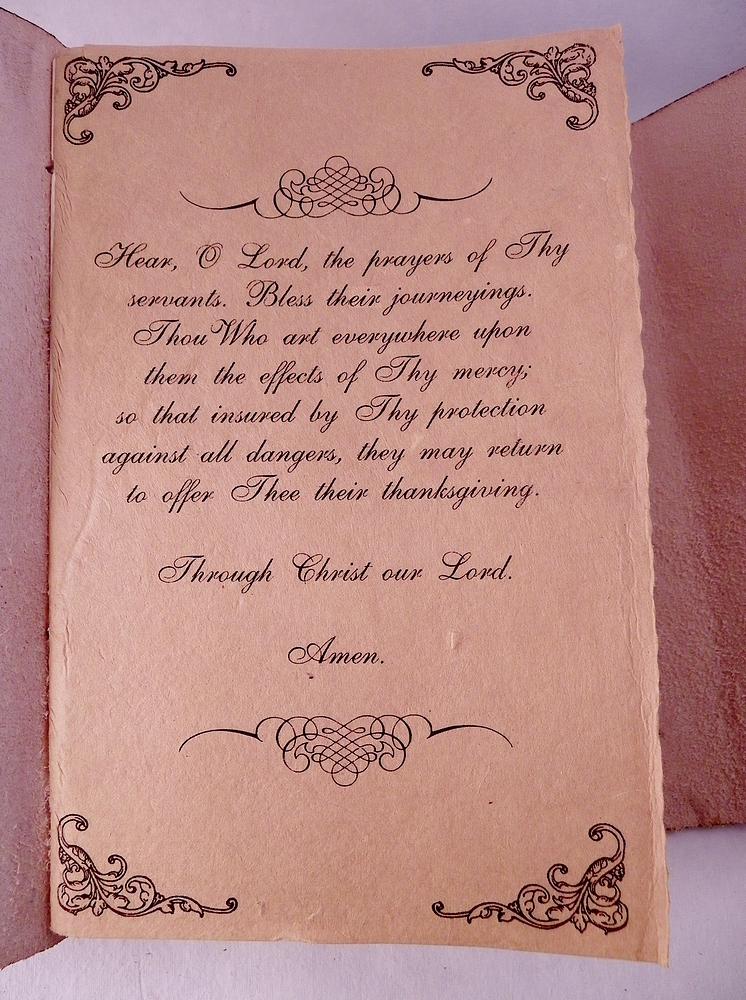 Hear, O Lord, the prayers of Thy
servants. Bless their journeyings.
Thou Who art everywhere upon
them the effects of Thy mercy;
so that insured by Thy protection
against all dangers, they may return
to offer Thee their thanksgiving.
Through Christ our Lord.
Amen.